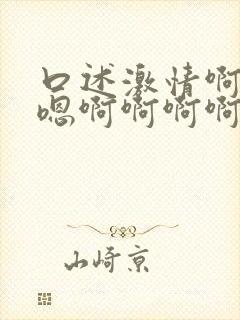 口述激情啊
嗯啊啊啊啊
山崎京